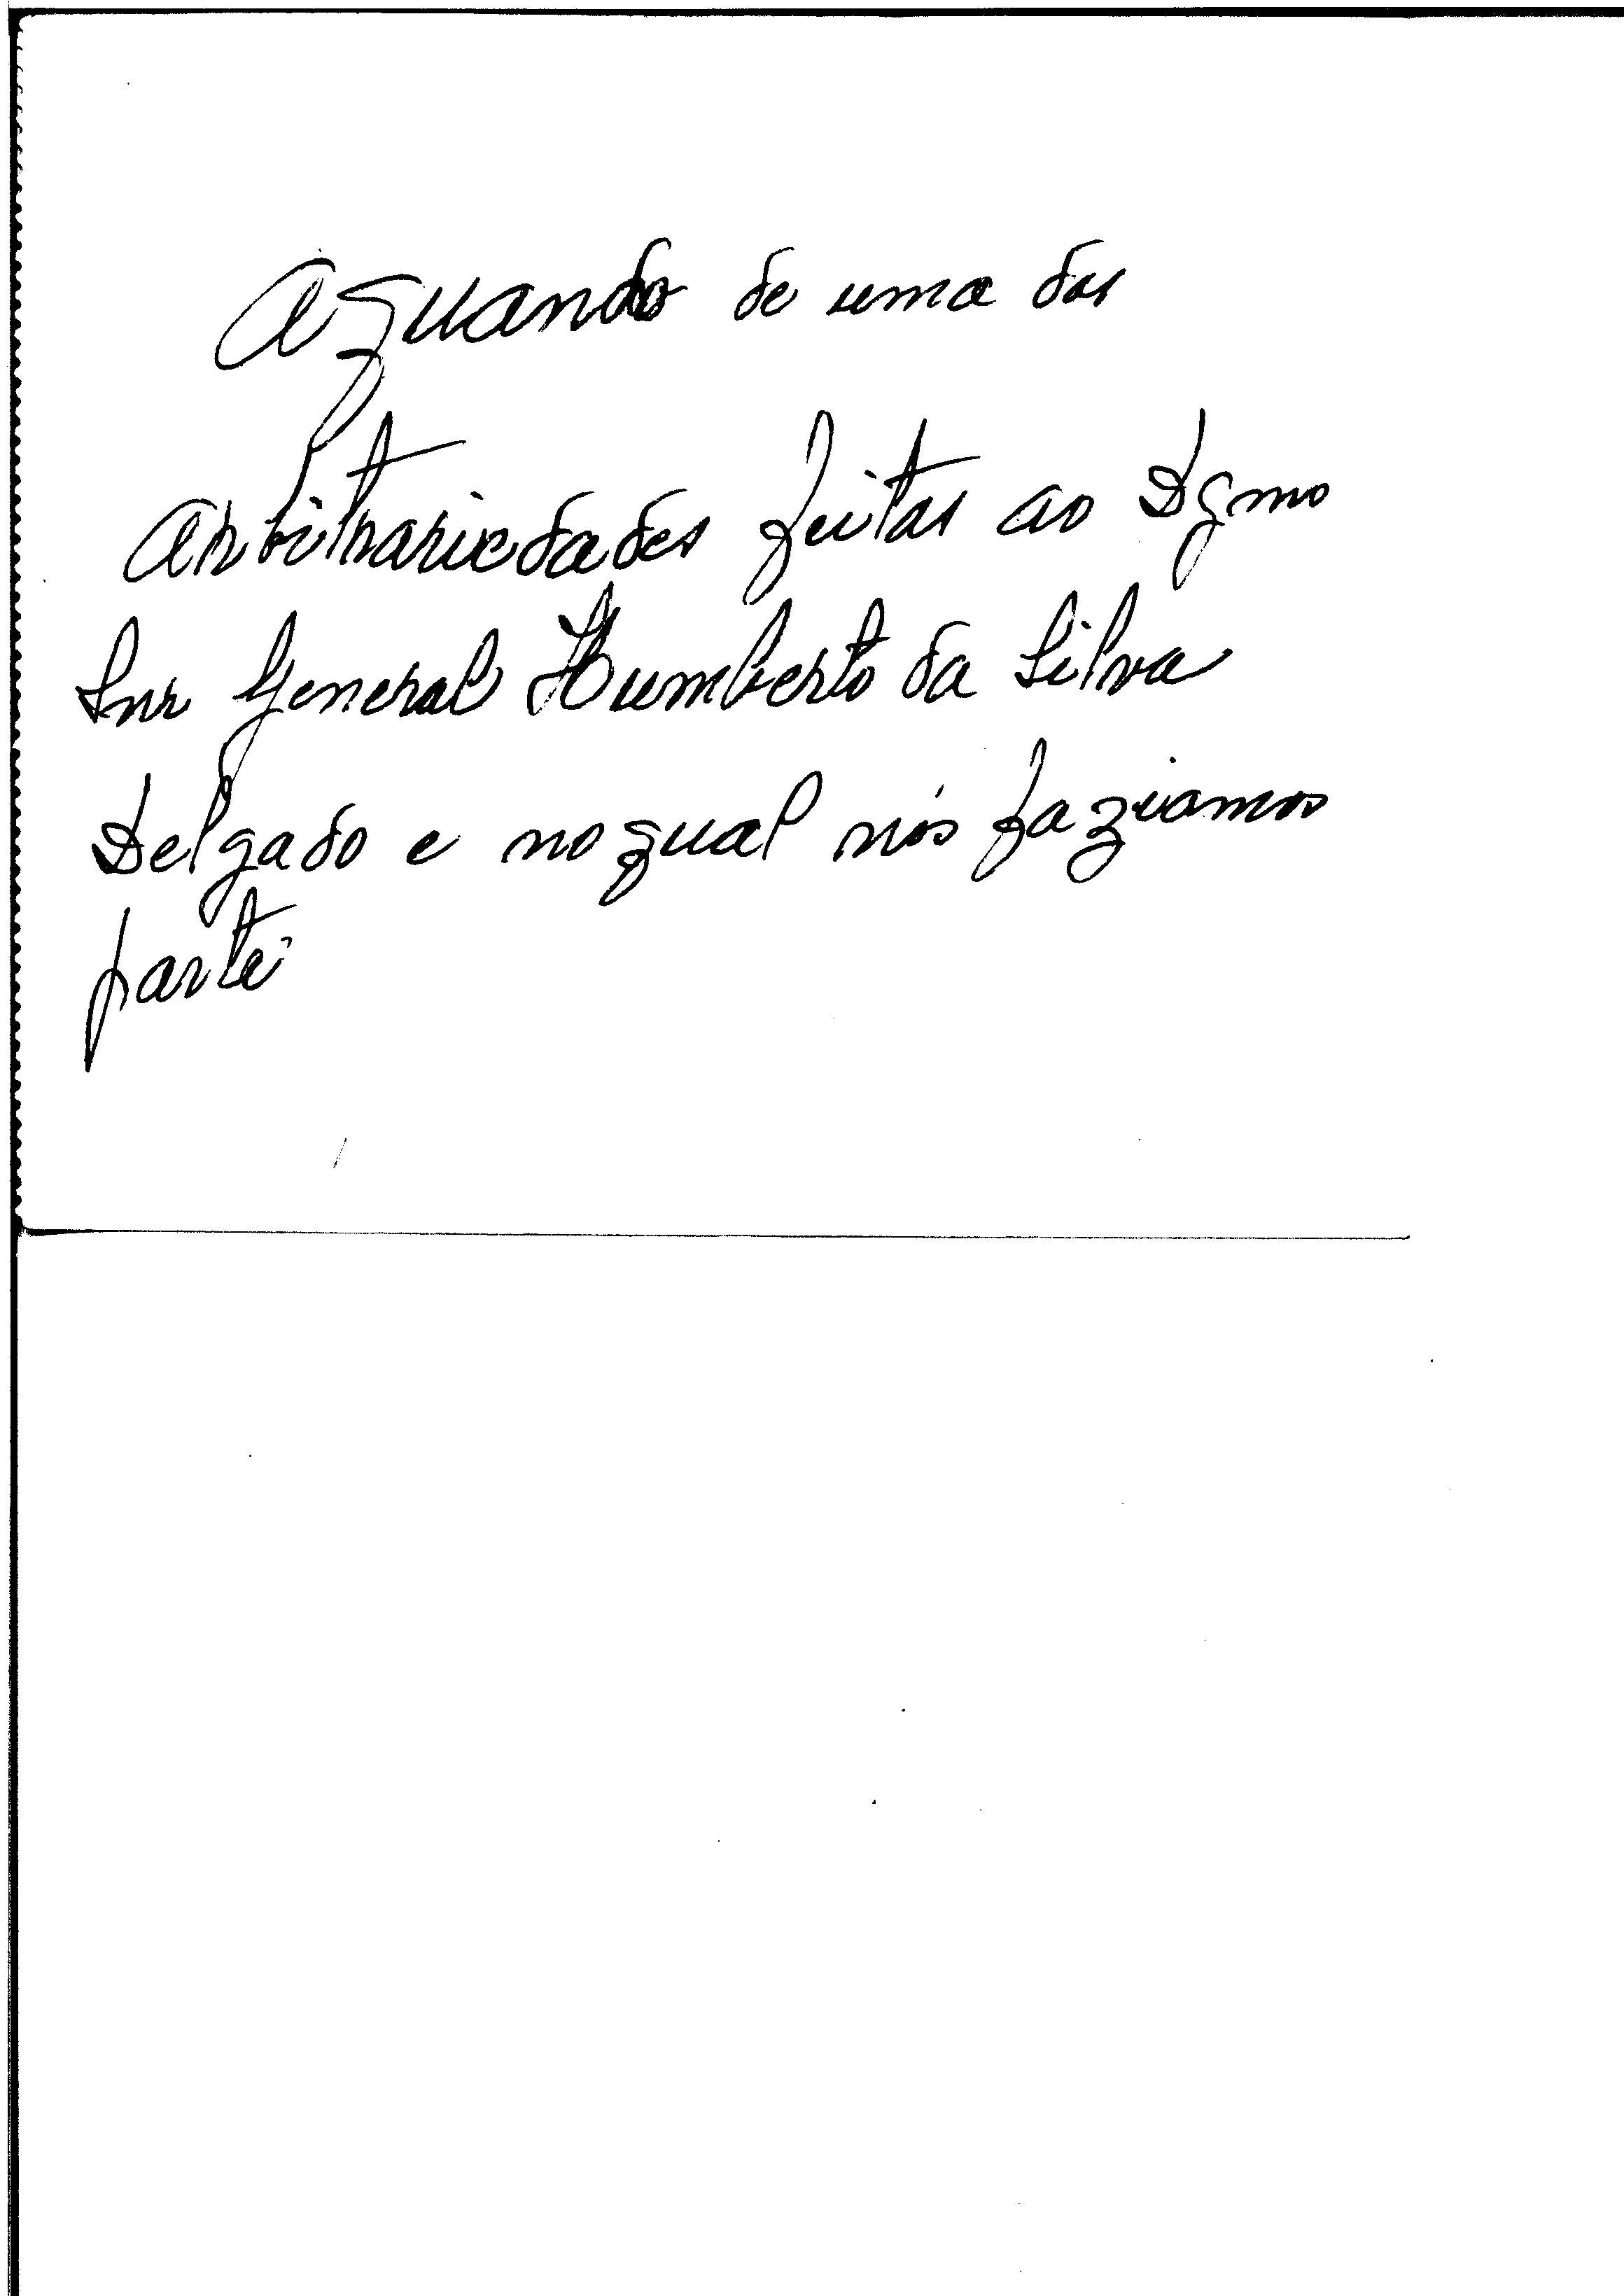 Aquando de uma das
Arbitrariedades feitas ao Dgmo
Snr General Humberto da Silva
Delgado e no qual nós faziamos
parte